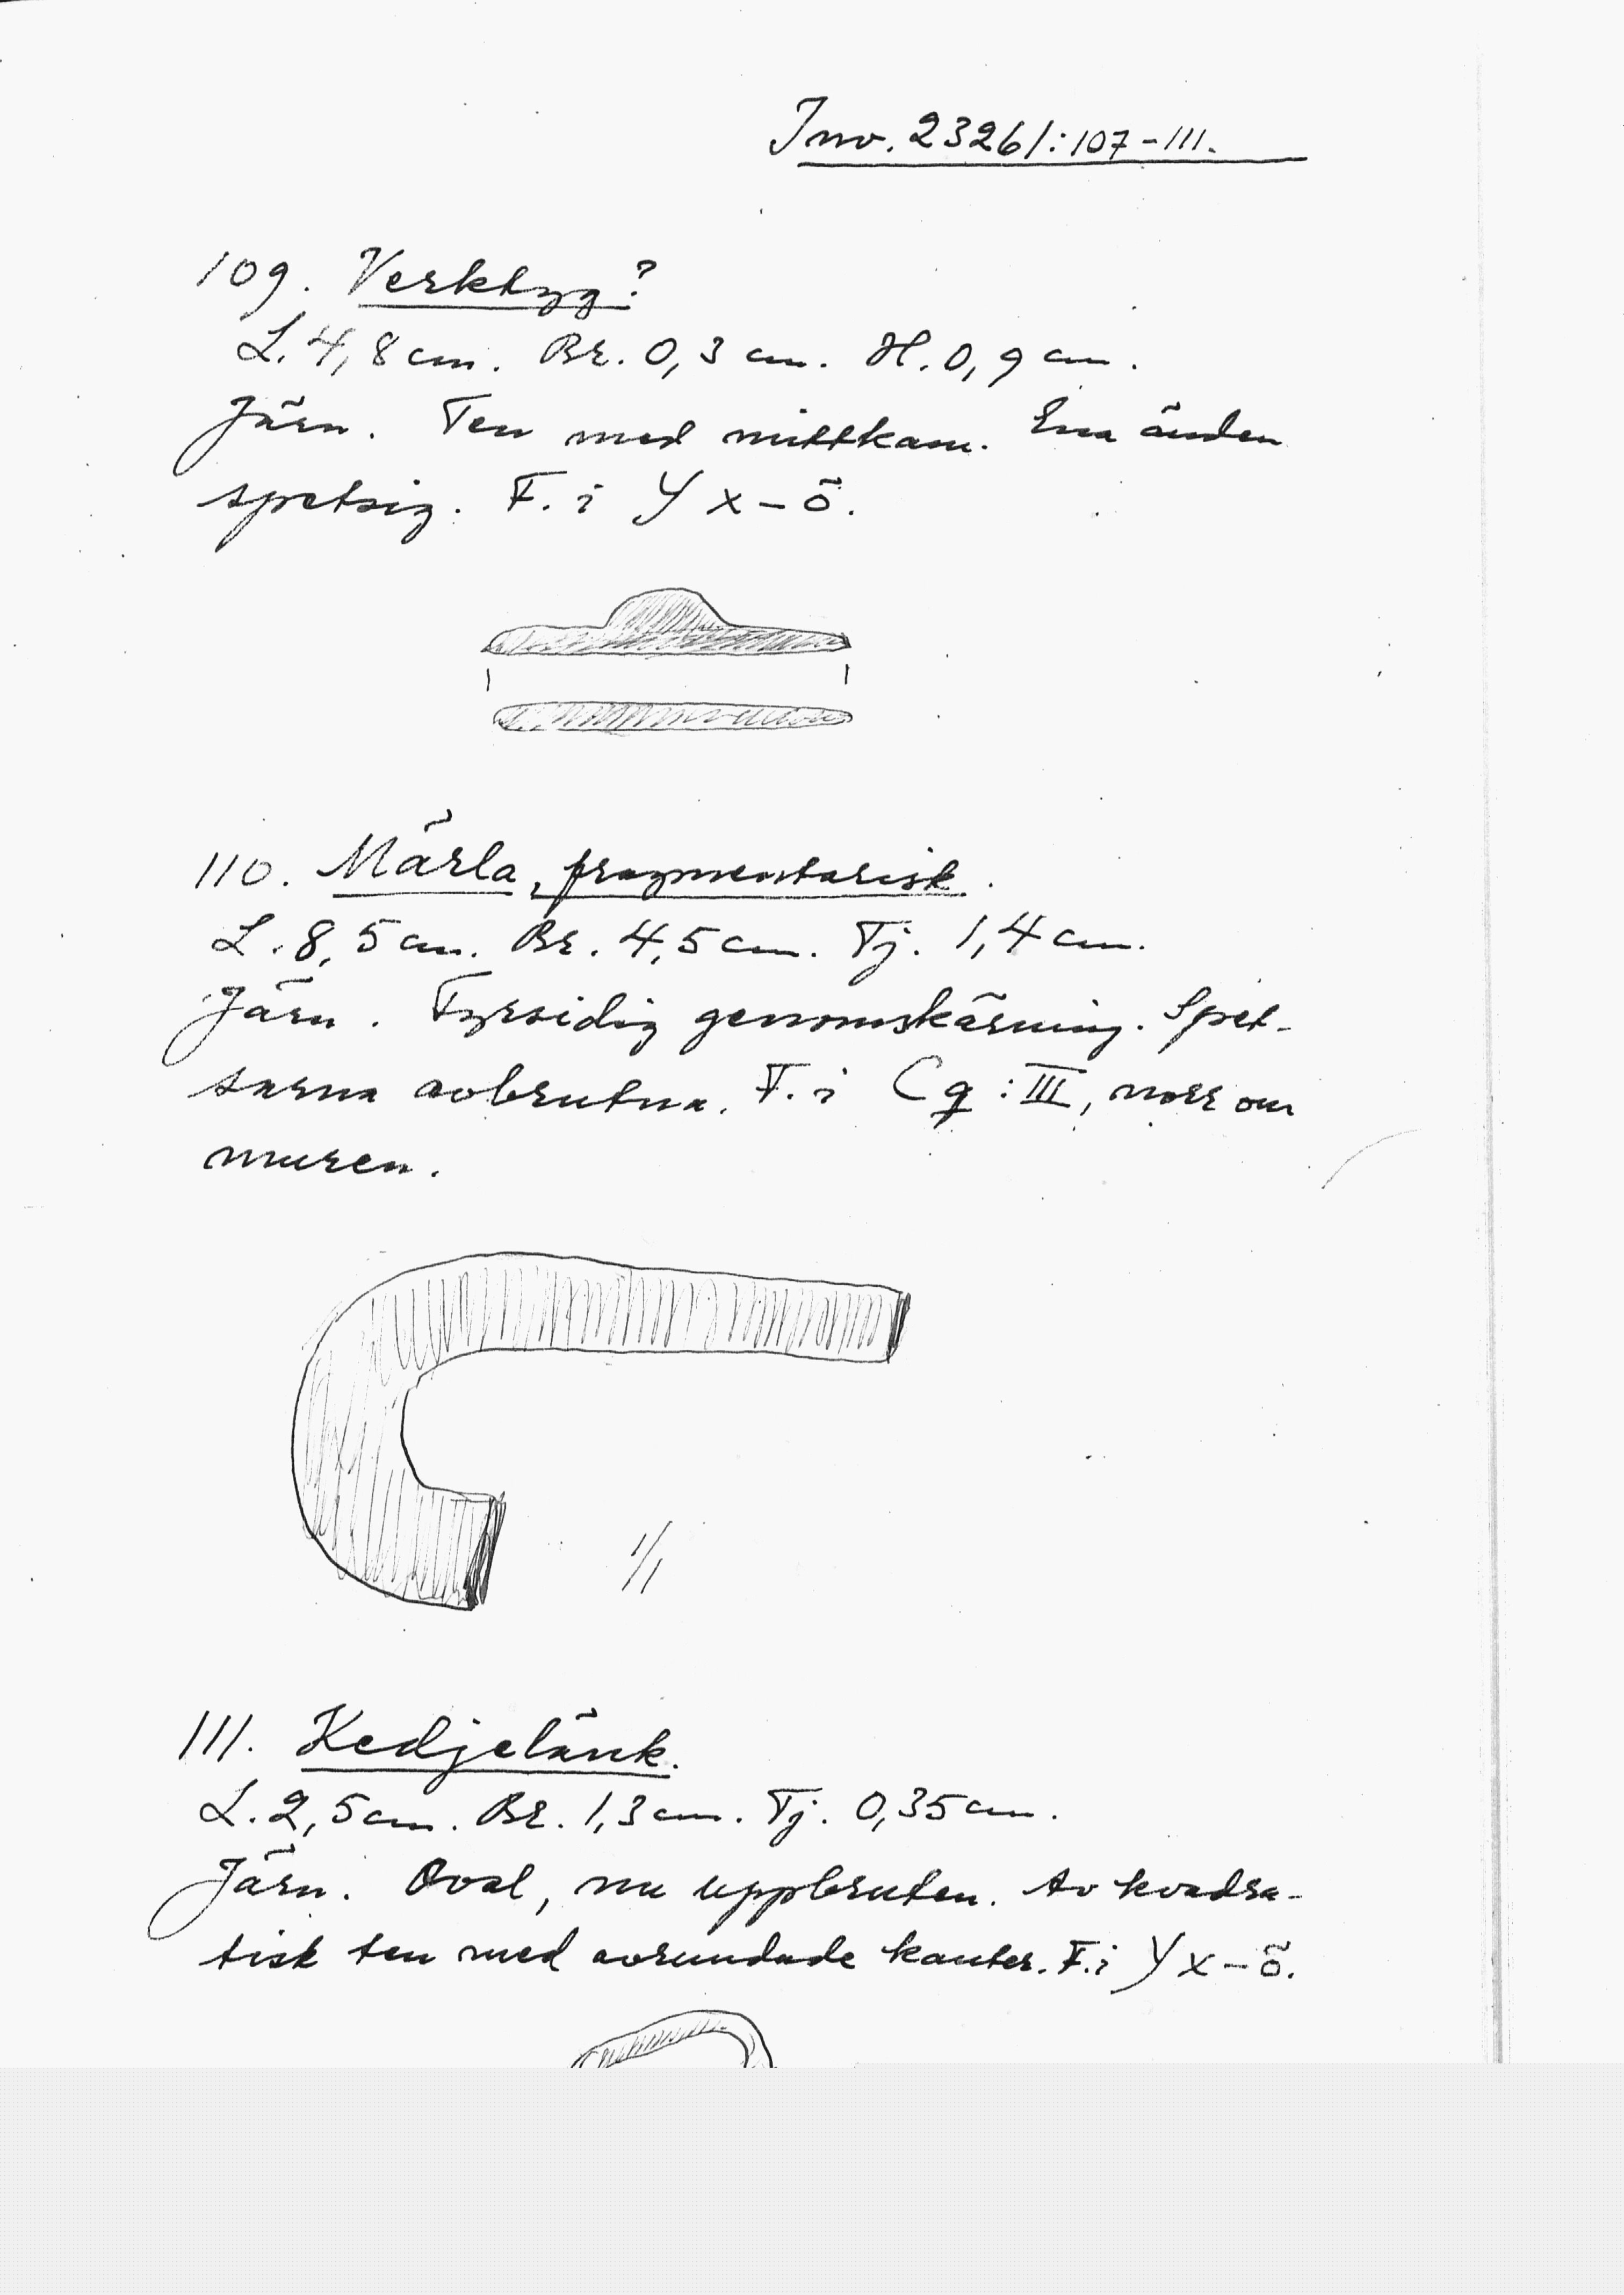 Inv. 23261:107-111.
109. Verktyg?
L. 4,8 cm. Br. 0,3 cm. H. 0,9 cm.
Järn. Ten med mittkam. Ena änden
spetsig. F. i Y x-ö.
110. Märla, fragmentarisk.
L. 8,5 cm. Br. 4,5 cm. Tj. 1,4 cm.
Järn. Fyrsidig genomskärning. Spet-
sarna avbrutna. F. i Cq:III, norr om
muren.
1/1
111. Kedjelänk.
L. 2,5 cm. Br. 1,3 cm. Tj. 0,35 cm.
Järn. Oval, nu uppbruten. Av kvadra-
tisk ten med avrundade kanter. F. i Y x-ö.